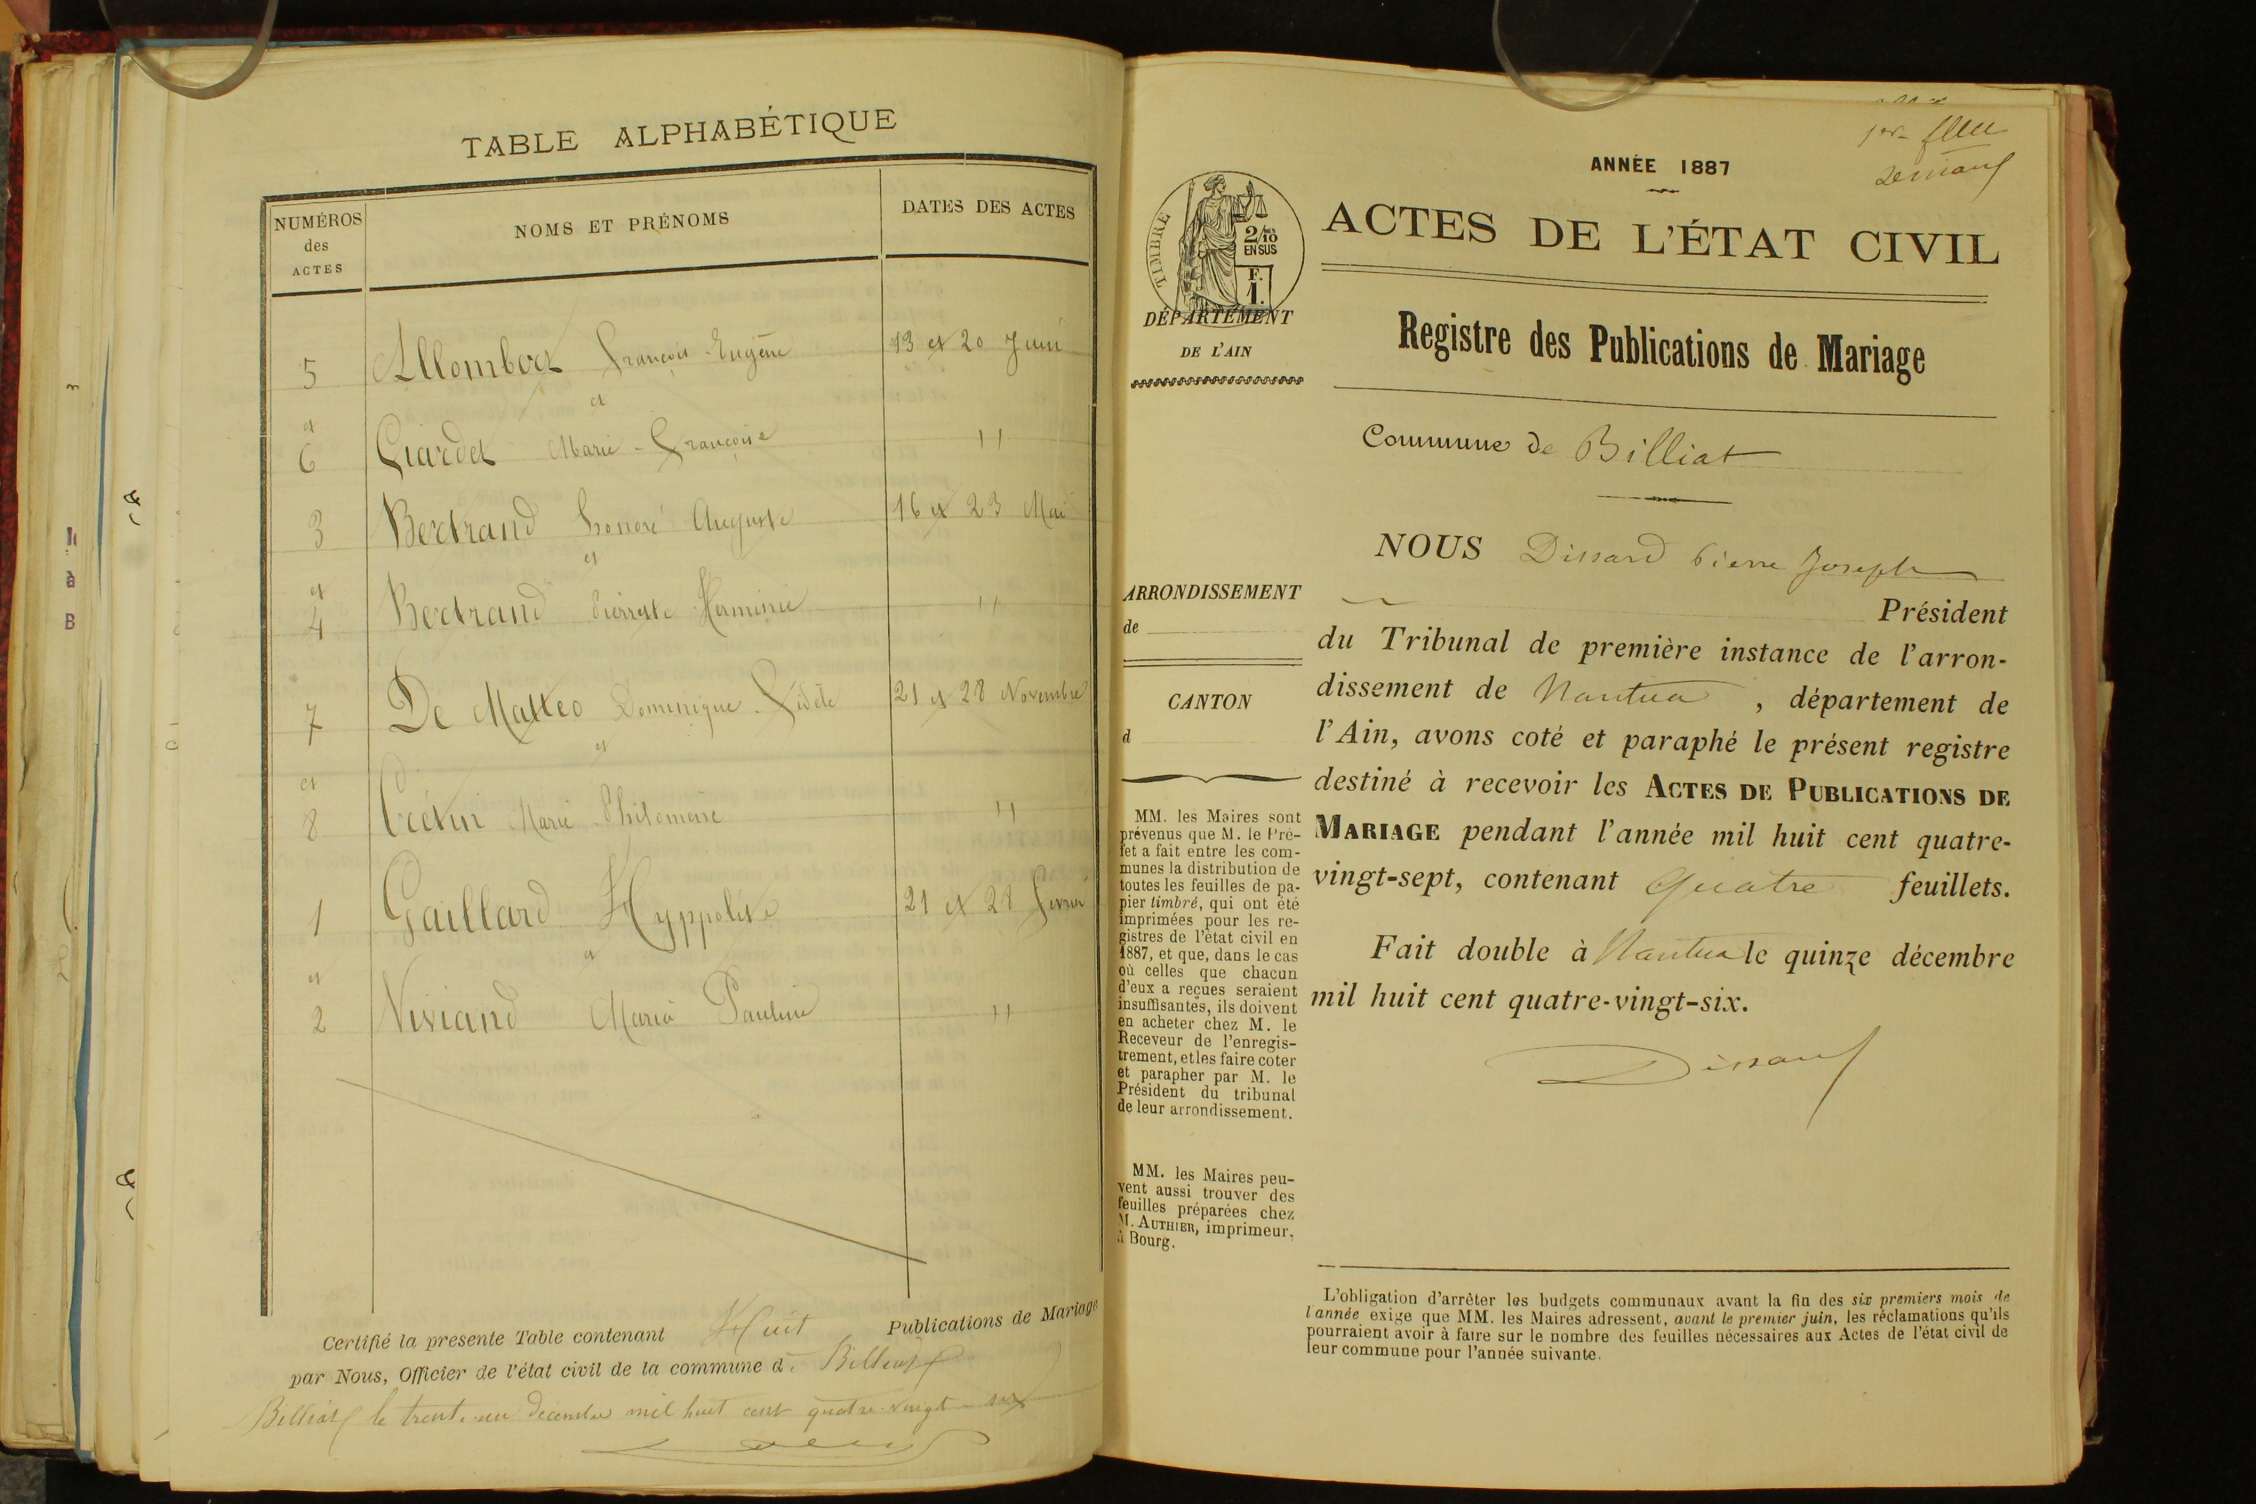 TABLE ALPHABÉTIQUE
NUMÉROS
des
ACTES
NOMS ET PRÉNOMS
DATES DES ACTES
5 Allombert François-Eugène 13 et 20 Juin
et
et
6 Giardet Marie-Françoise "
3 Bertrand honoré Auguste 16 et 23 Mai
et
et
4 Bertrand Pierrette Herminie "
7 De Matteo Dominique-Fidèle 21 et 28 Novembre
et
et
8 Crétin Marie Philomène "
1 Gaillard Hyppolite 21 et 28 Février
et
et
2 Niviand Maria Pauline "
Certifié la presente Table contenant Huit Publications de Mariage
par Nous, Officier de l'état civil de la commune d. Billiat
Billiat le trente-un décembre mil huit cent quatre-vingt-six
TIMBRE
2/10
EN SUS
F.
1.
DÉPARTEMENT
DE L'AIN
ARRONDISSEMENT
de
CANTON
d
MM. les Maires sont
prévenus que M. le Pré-
fet a fait entre les com-
munes la distribution de
toutes les feuilles de pa-
pier timbré, qui ont été
imprimées pour les re-
gistres de l'état civil en
1887, et que, dans le cas
où celles que chacun
d'eux a reçues seraient
insuffisantes, ils doivent
en acheter chez M. le
Receveur de l'enregis-
trement, et les faire coter
et parapher par M. le
Président du tribunal
de leur arrondissement.
MM. les Maires peu-
vent aussi trouver des
feuilles préparées chez
M. AUTHIER, imprimeur,
à Bourg.
ANNÉE 1887
ACTES DE L'ÉTAT CIVIL
Registre des Publications de Mariage
Commune de Billiat
NOUS Dissard Pierre Joseph
Président
du Tribunal de première instance de l'arron-
dissement de Nantua, département de
l'Ain, avons coté et paraphé le présent registre
destiné à recevoir les ACTES DE PUBLICATIONS DE
MARIAGE pendant l'année mil huit cent quatre-
vingt-sept, contenant Quatre feuillets.
Fait double à Nantua le quinze décembre
mil huit cent quatre-vingt-six.
Dissard
L'obligation d'arrêter les budgets communaux avant la fin des six premiers mois de
l'année exige que MM. les Maires adressent, avant le premier juin, les réclamations qu'ils
pourraient avoir à faire sur le nombre des feuilles nécessaires aux Actes de l'état civil de
leur commune pour l'année suivante.